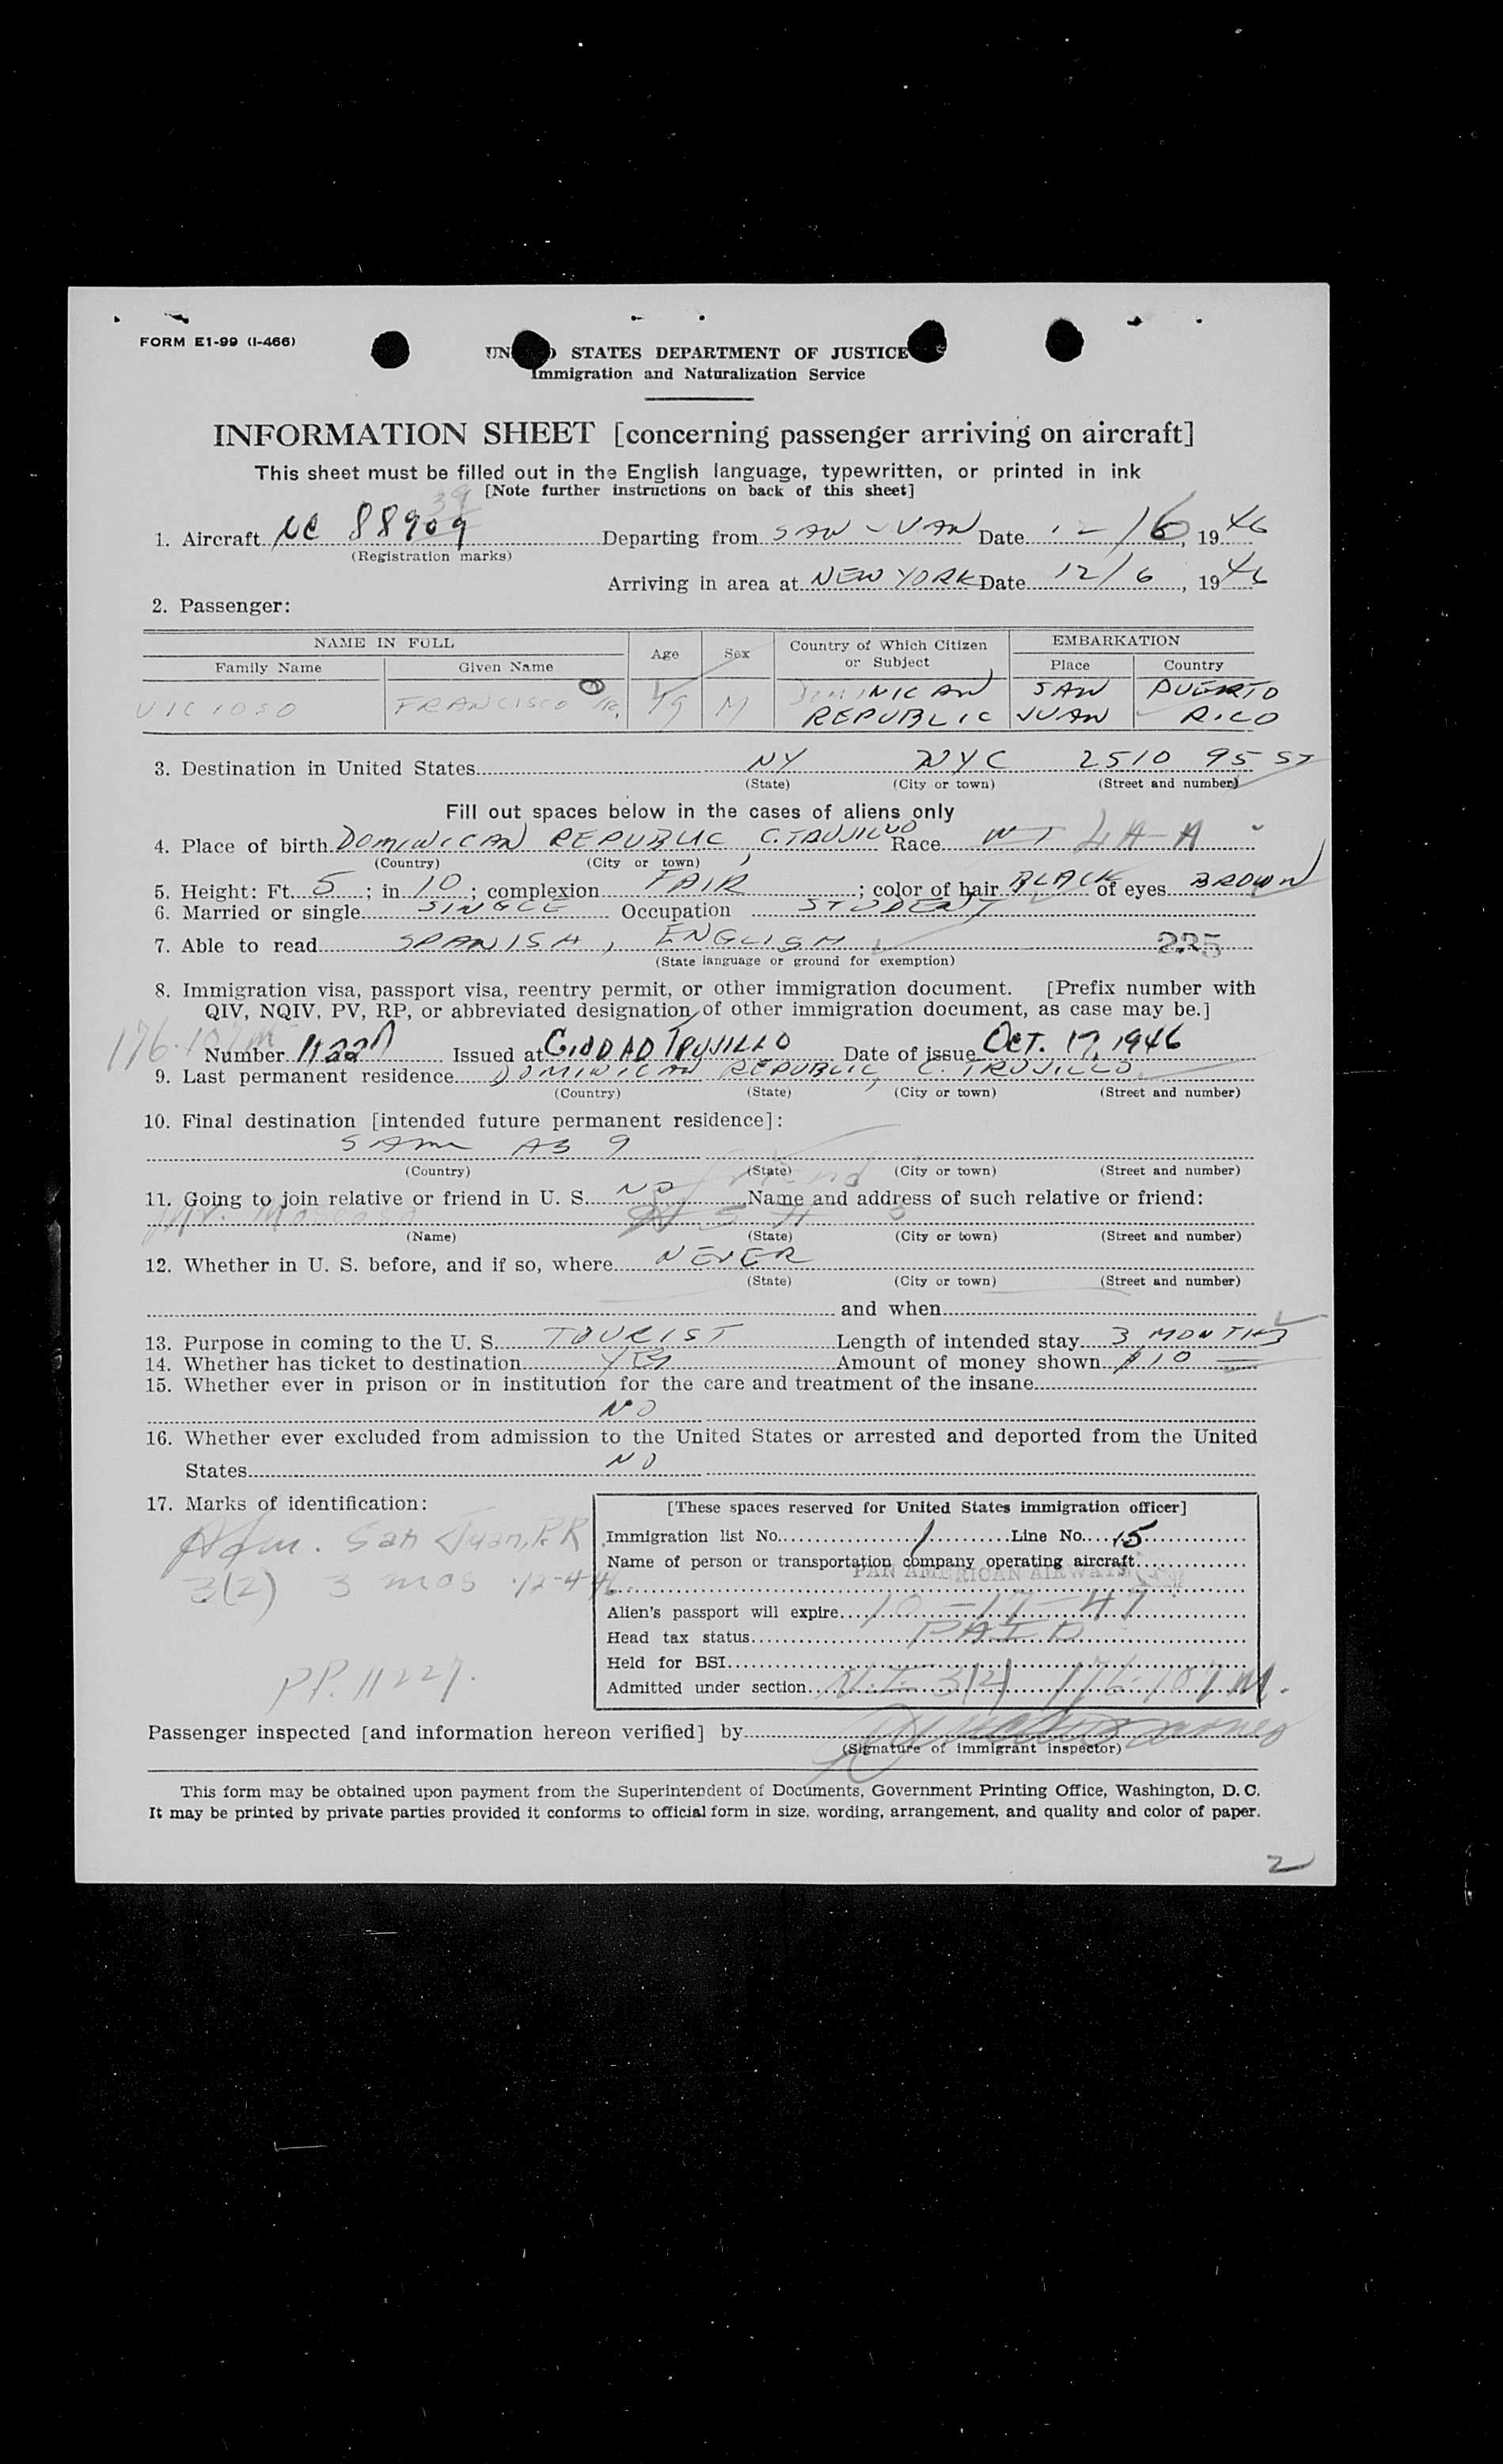 FORM E1-99 (I-466)
STATES DEPARTMENT OF JUSTICE
Immigration and Naturalization Service
INFORMATION SHEET [concerning passenger arriving on aircraft]
This sheet must be filled out in the English language, typewritten, or printed in ink
[Note further instructions on back of this sheet]
39
1. Aircraft NC 88909 Departing from SAN JUAN Date 16, 1946
(Registration marks)
Arriving in area at NEW YORK Date 12/6, 1946
2. Passenger:
NAME IN FULL Age Sex Country of Which Citizen or Subject EMBARKATION
Family Name Given Name Place Country
VICIOSO FRANCISCO JR. 19 M DOMINICAN SAN PUERTO
REPUBLIC JUAN RICO
3. Destination in United States NY NYC 2510 95 ST
(State) (City or town) (Street and number)
Fill out spaces below in the cases of aliens only
4. Place of birth DOMINICAN REPUBLIC, C. TRUJILLO Race
(Country) (City or town)
5. Height: Ft. 5; in 10; complexion FAIR; color of hair BLACK of eyes BROWN
6. Married or single SINGLE Occupation STUDENT
7. Able to read SPANISH, ENGLISH 235
(State language or ground for exemption)
8. Immigration visa, passport visa, reentry permit, or other immigration document. [Prefix number with
QIV, NQIV, PV, RP, or abbreviated designation of other immigration document, as case may be.]
176-107M
Number 11227 Issued at CIUDAD TRUJILLO Date of issue OCT. 17, 1946
9. Last permanent residence DOMINICAN REPUBLIC, C. TRUJILLO
(Country) (State) (City or town) (Street and number)
10. Final destination [intended future permanent residence]:
SAME AS 9
(Country) (State) (City or town) (Street and number)
friend
11. Going to join relative or friend in U. S. NO Name and address of such relative or friend:
Mr. Moscoso
(Name) (State) (City or town) (Street and number)
12. Whether in U. S. before, and if so, where NEVER
(State) (City or town) (Street and number)
and when
13. Purpose in coming to the U. S. TOURIST Length of intended stay 3 MONTHS
14. Whether has ticket to destination YES Amount of money shown $10
15. Whether ever in prison or in institution for the care and treatment of the insane
NO
16. Whether ever excluded from admission to the United States or arrested and deported from the United
States NO
17. Marks of identification:
Adm. San Juan, P.R.
3(2) 3 mos 12-4-46
PP. 11227.
[These spaces reserved for United States immigration officer]
Immigration list No. 1 Line No. 15
Name of person or transportation company operating aircraft
PAN AMERICAN AIRWAYS
Alien's passport will expire 10-17-47
Head tax status PAID
Held for BSI
Admitted under section 3(2) 176-107 M.
Passenger inspected [and information hereon verified] by
(Signature of immigrant inspector)
This form may be obtained upon payment from the Superintendent of Documents, Government Printing Office, Washington, D. C.
It may be printed by private parties provided it conforms to official form in size, wording, arrangement, and quality and color of paper.
2